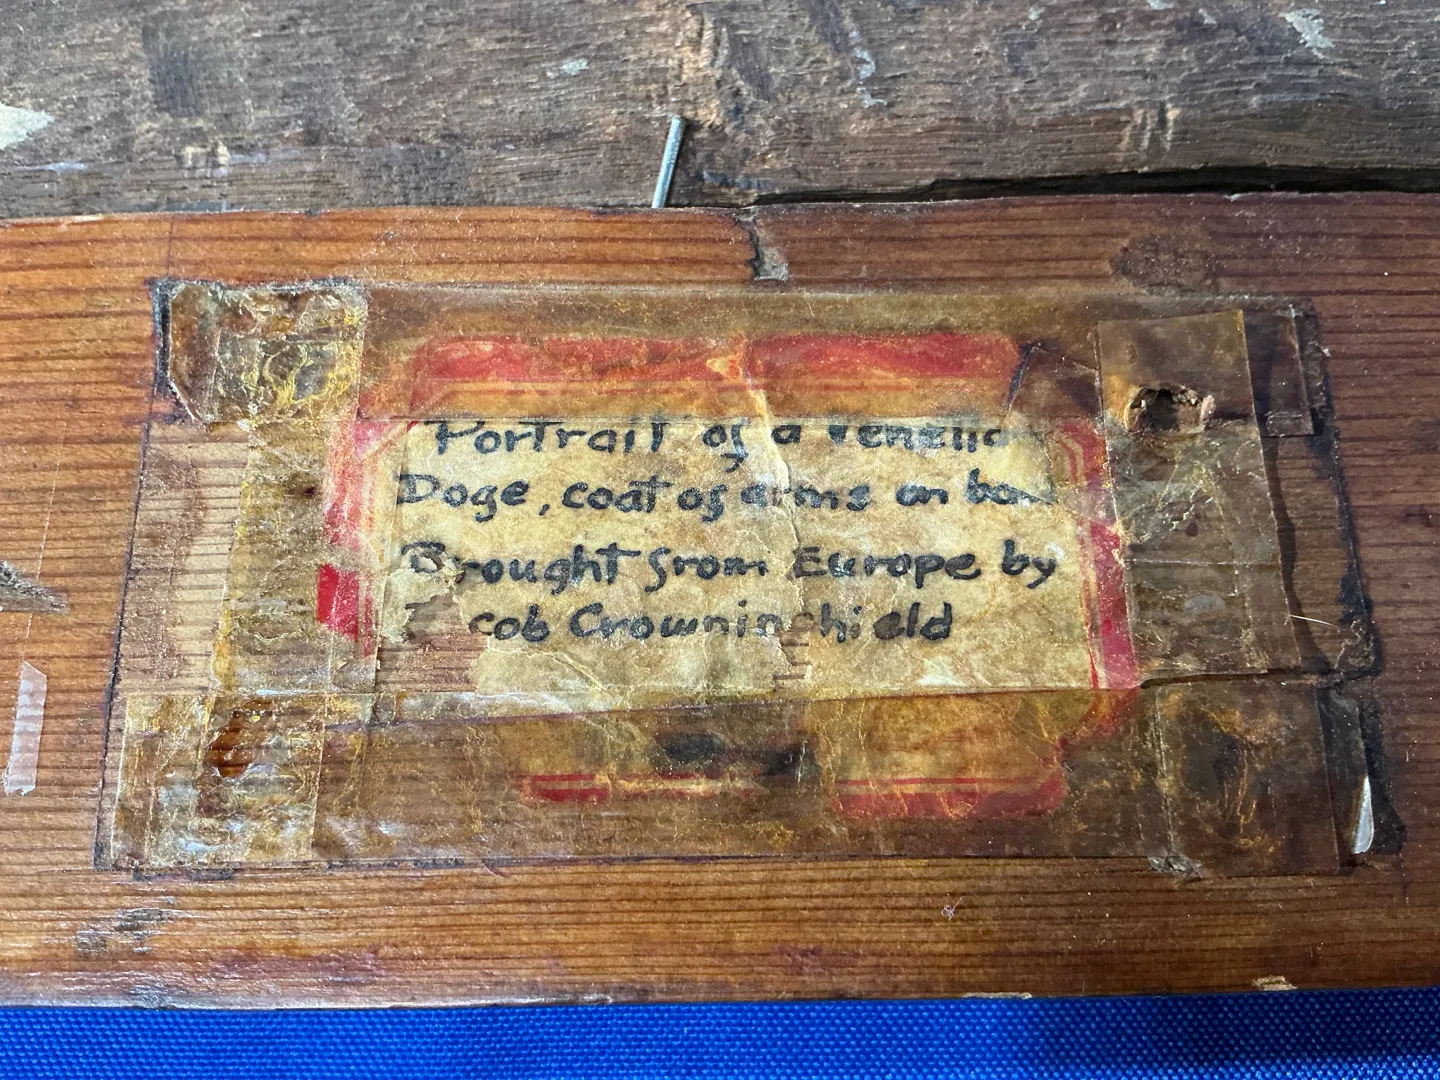 Portrait of a Venetia
Doge, coat of arms on bac
Brought from Europe by
cob Crowninshield